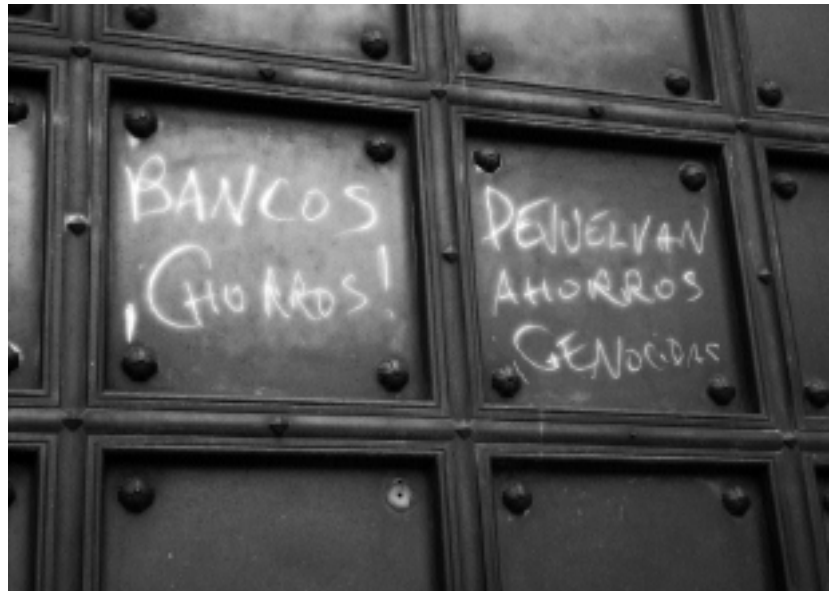 BANCOS
¡CHORROS!
DEVUELVAN
AHORROS
GENOCIDAS